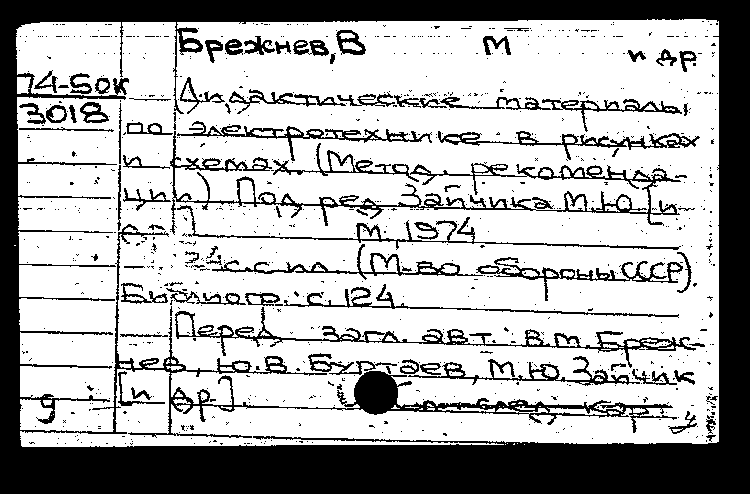 Брежнев, В М и др.
74-50к
3018
Дидактические материалы
по электротехнике в рисунках
и схемах. (Метод. рекоменда-
ции). Под ред. Зайчика М.Ю. [и
др.] М., 1974
124 с. с ил. (М-во обороны СССР).
Библиогр.: с. 124.
Перед загл. авт.: В.М. Бреж-
нев, Ю.В. Буртаев, М.Ю. Зайчик
[и др.].
след. кар
9